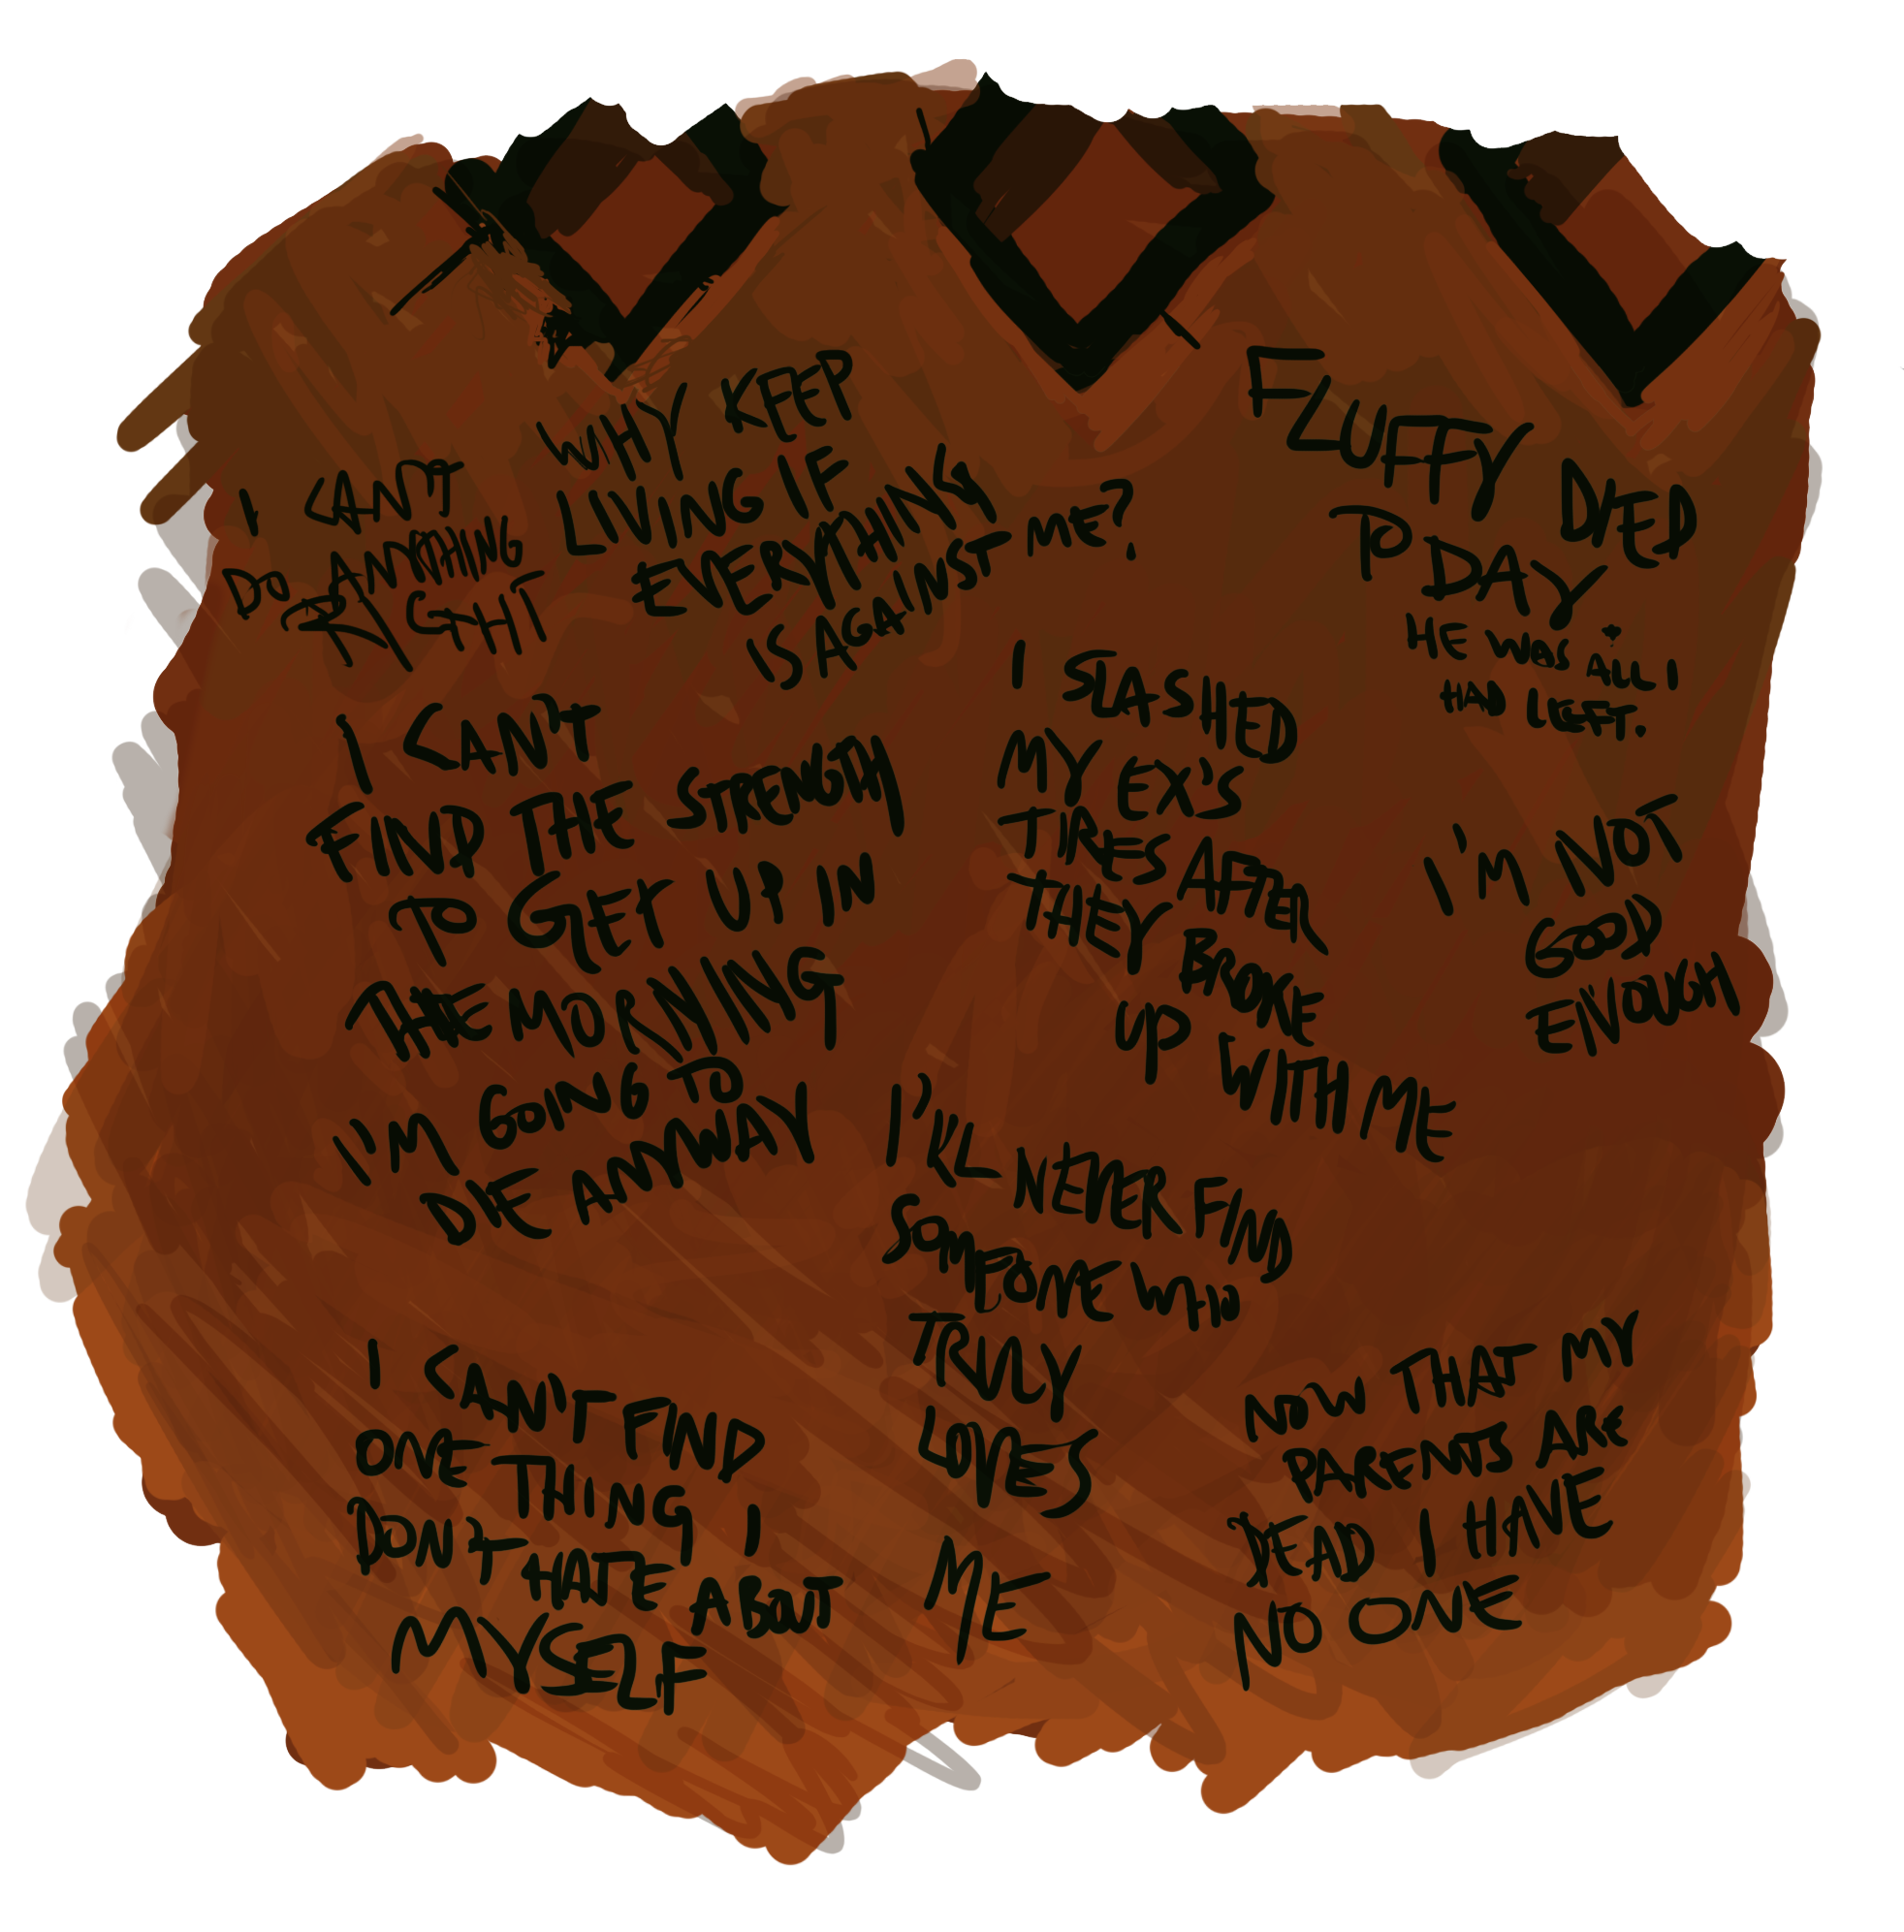 I CAN'T
DO ANYTHING
RIGHT
WHY KEEP
LIVING IF
EVERYTHING
IS AGAINST ME?
FLUFFY DIED
TODAY
HE WAS ALL I
HAD LEFT.
I CAN'T
FIND THE STRENGTH
TO GET UP IN
THE MORNING
I SLASHED
MY EX'S
TIRES AFTER
THEY BROKE
UP WITH ME
I'M NOT
GOOD
ENOUGH
I'M GOING TO
DIE ANYWAY
I'LL NEVER FIND
SOMEONE WHO
TRULY
LOVES
ME
I CAN'T FIND
ONE THING I
DON'T HATE ABOUT
MYSELF
NOW THAT MY
PARENTS ARE
DEAD I HAVE
NO ONE